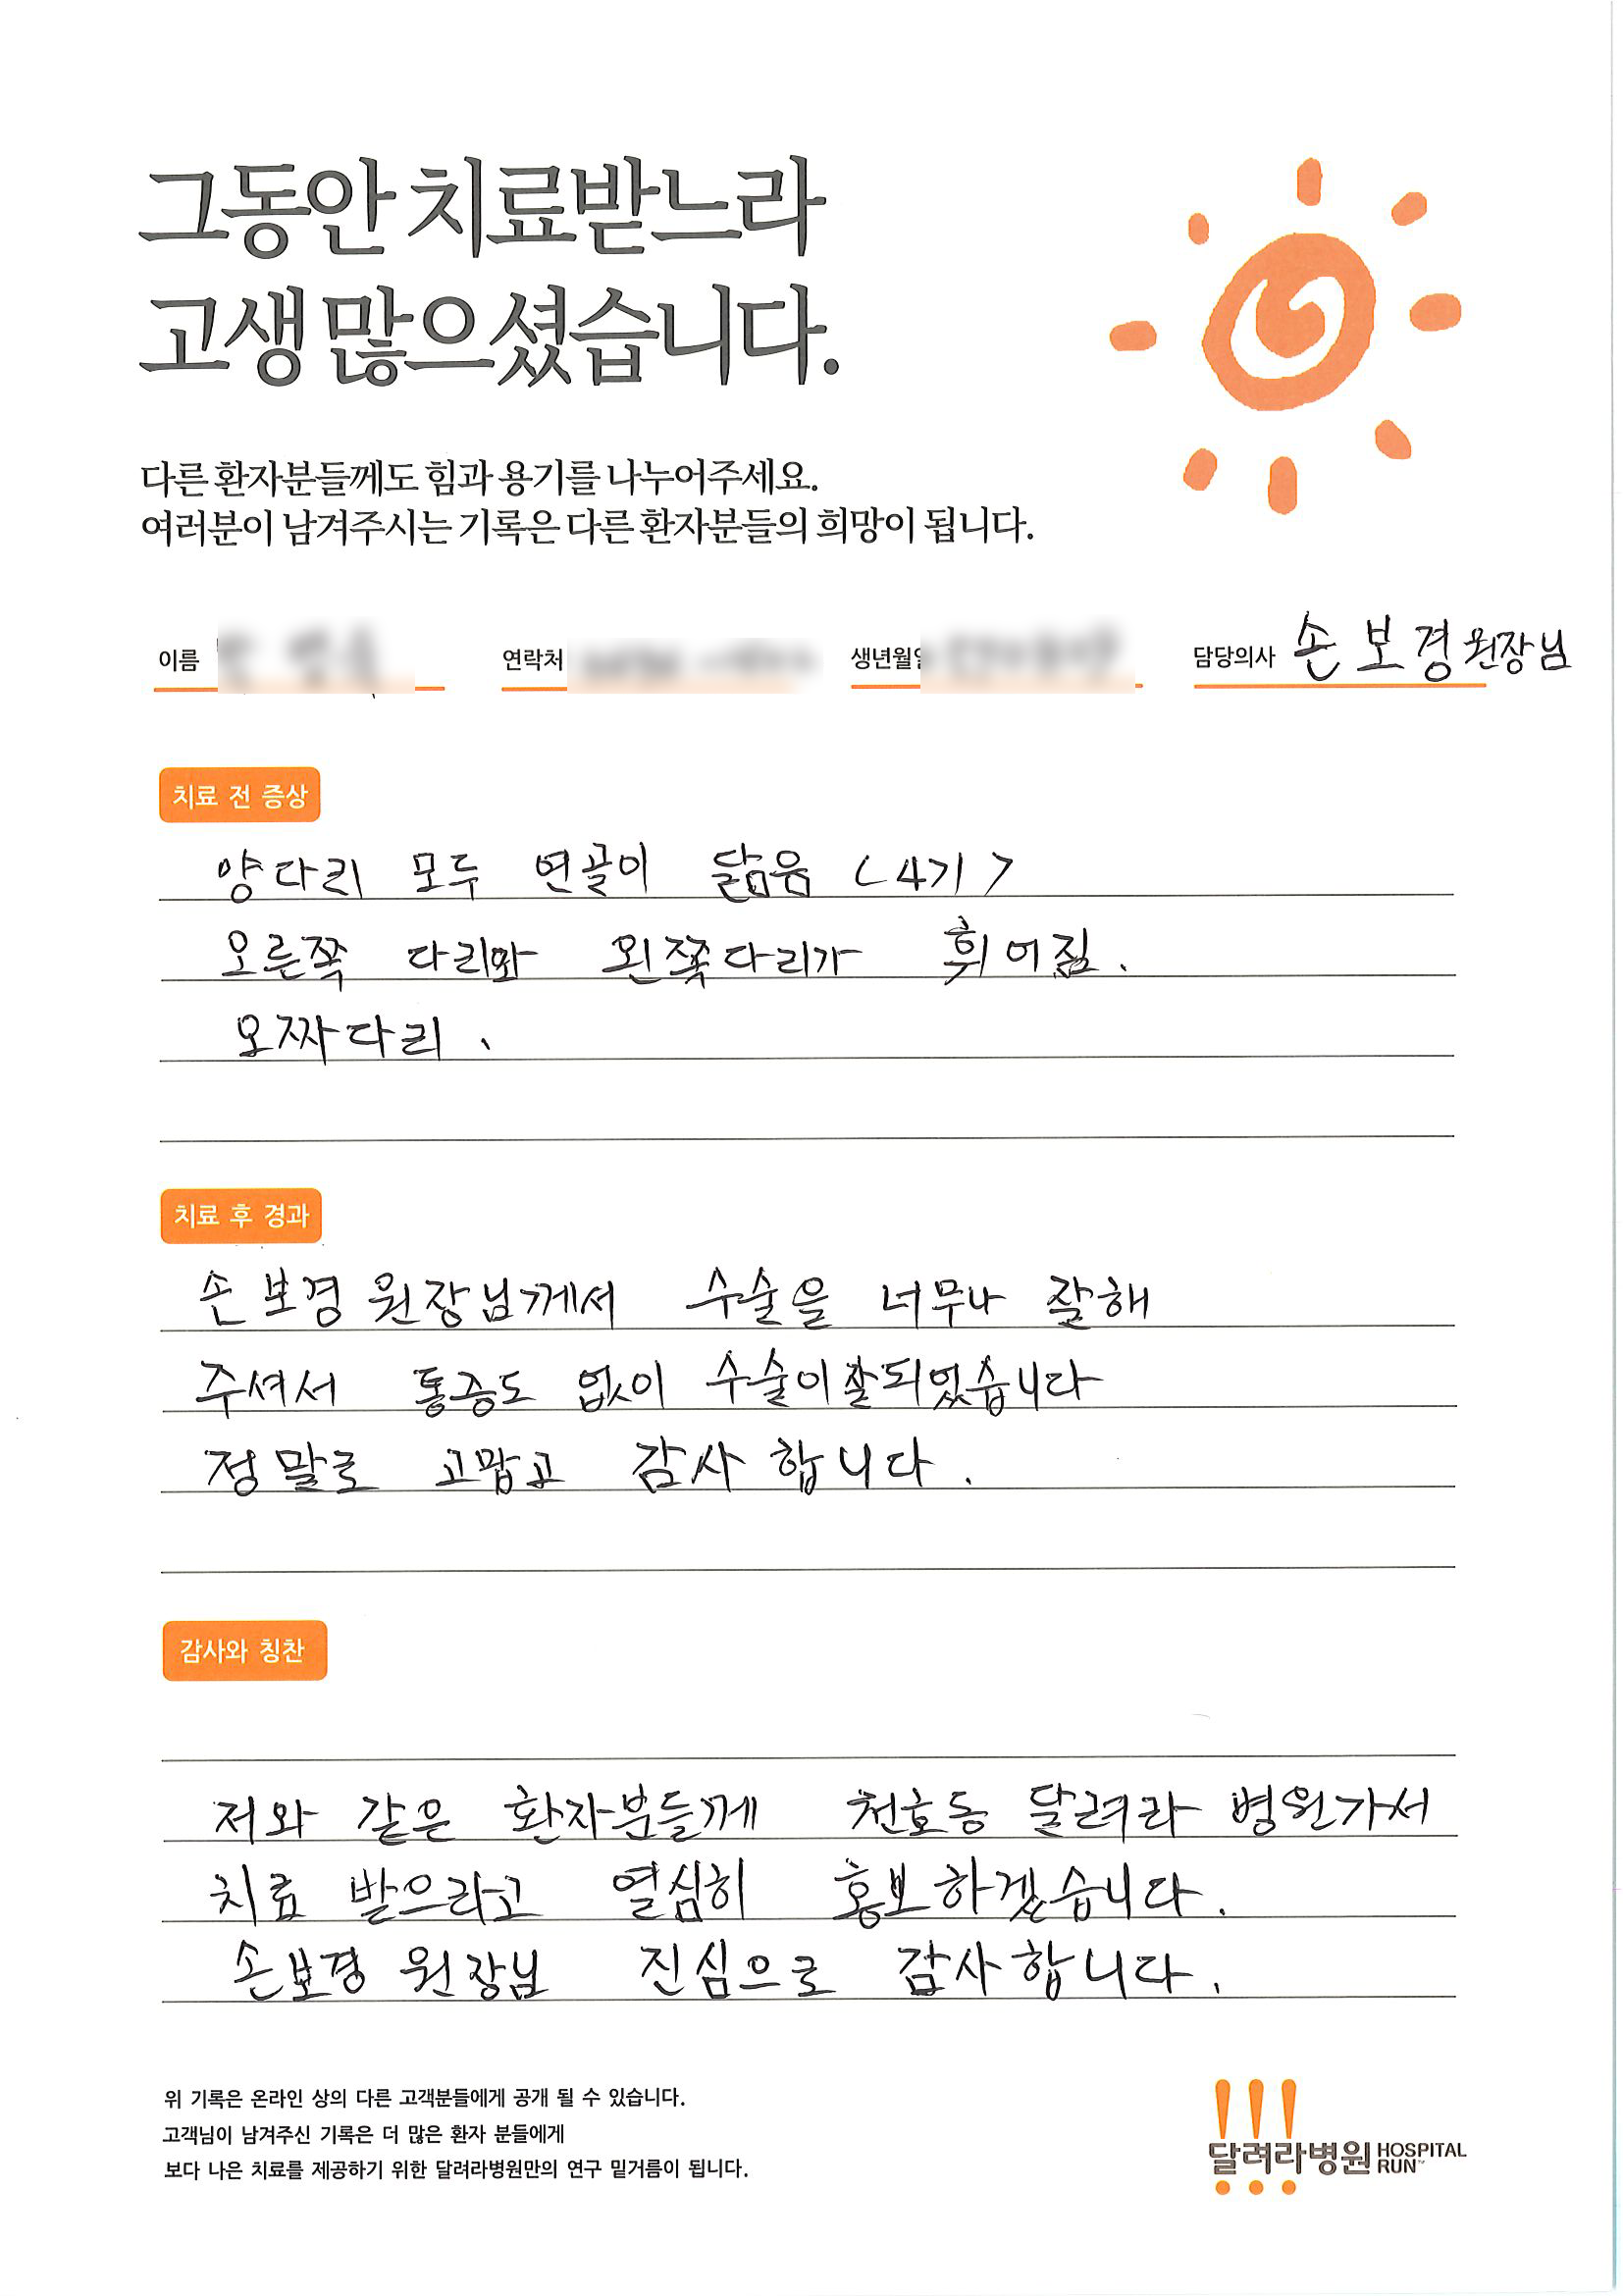 그동안 치료받느라
고생 많으셨습니다.
다른 환자분들께도 힘과 용기를 나누어주세요.
여러분이 남겨주시는 기록은 다른 환자분들의 희망이 됩니다.
이름 연락처 생년월일 담당의사 손보경 원장님
치료 전 증상
양다리 모두 연골이 닮음 <4기>
오른쪽 다리와 왼쪽다리가 휘어짐.
오짜다리.
치료 후 경과
손보경 원장님께서 수술을 너무나 잘해
주셔서 통증도 없이 수술이 잘되었습니다
정말로 고맙고 감사합니다.
감사와 칭찬
저와 같은 환자분들께 천호동 달려라 병원가서
치료 받으라고 열심히 홍보하겠습니다.
손보경 원장님 진심으로 감사합니다.
위 기록은 온라인 상의 다른 고객분들에게 공개 될 수 있습니다.
고객님이 남겨주신 기록은 더 많은 환자 분들에게
보다 나은 치료를 제공하기 위한 달려라병원만의 연구 밑거름이 됩니다.
달려라병원 HOSPITAL RUN